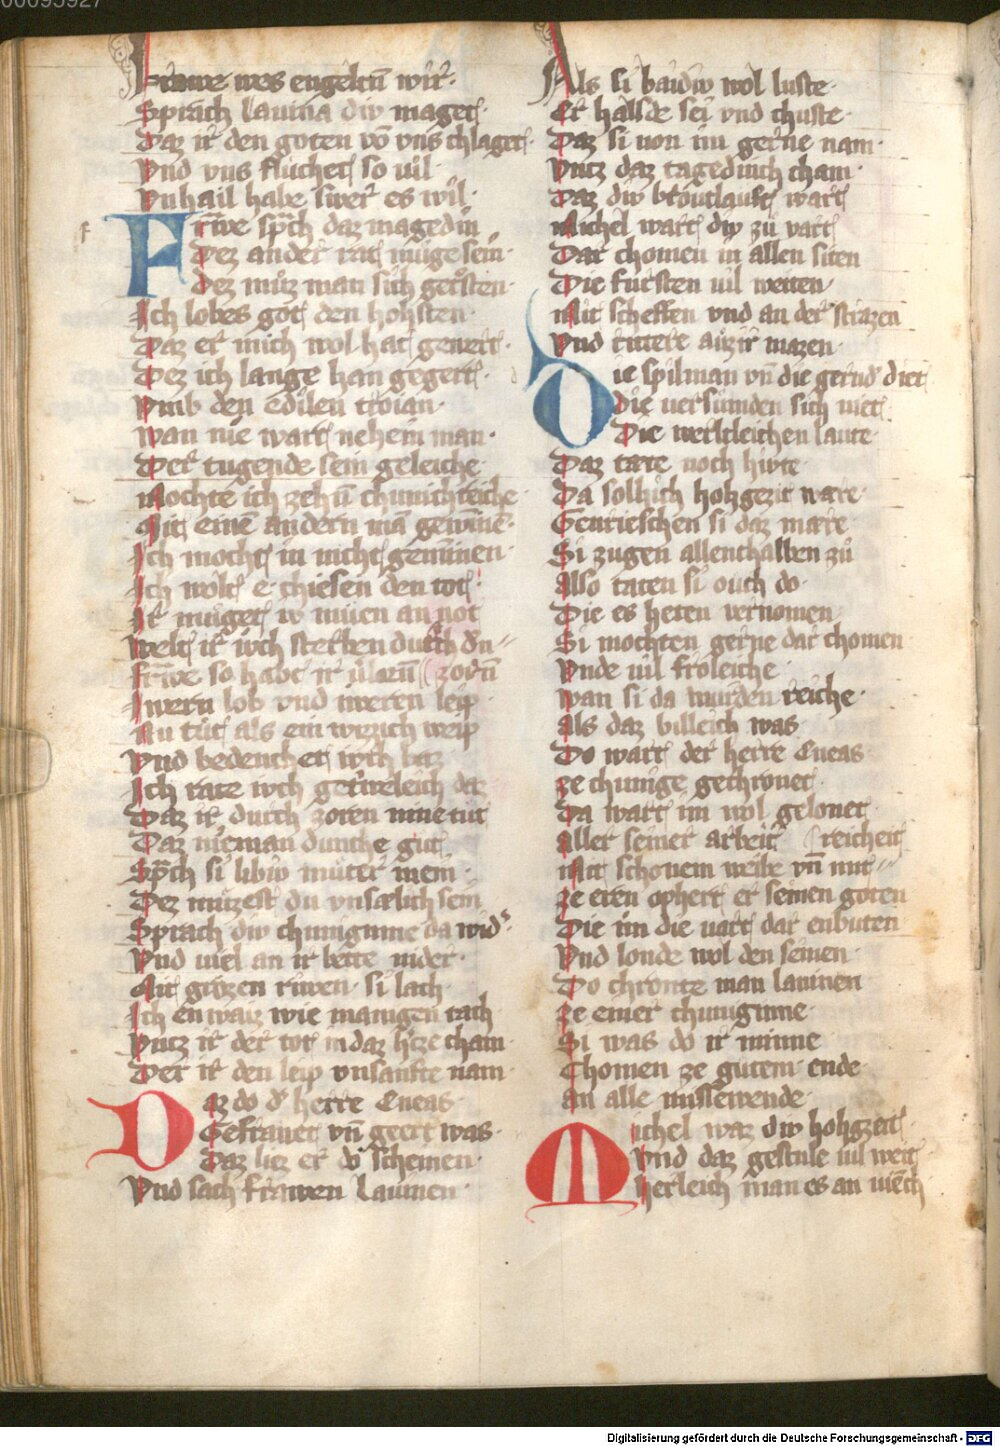 00095927
Frawe wes engelten wir·
Sprach lauina diu maget·
Daz ir den goten vō vns chlaget·
Vnd vns fluchet so uil
Vnhail habe swer es wil·
Frawe sp̄ch daz magedin
Dez ander rat muge sein·
Dez muz man sich gersten·
Ich lobes got den hohsten
Daz er mich wol hat gewert·
Dez ich lange han gegert·
Vmb den edilen troian·
Wan nie wart nehein man·
Der tugende sein geleiche
Mochte ich zehē chunichreiche
Mit einē andern mā gewinnē·
Ich mocht in nicht geminnen·
Ich wolt e chiesen den tot
Ir muget iv muen an not
Welt ir ivch sterben durch dn̄
Frawe so habt ir ūlarn zorn
Iwern lob vnd iweren leip
Nu tut als ein witzich weip
Vnd bedenchet ivch baz
Ich rate ivch getriveleich daz
Daz ir durch zoren nine tut
Daz nieman dunche gut
Sp̄ch si libiv muter mein·
Dez muzest du vnsælich sein
Sprach div chuniginne da wid͛
Vnd uiel an ir bette nider·
Mit grozen riwen si lach
Ich enwaiz wie manigen tach
Vntz ir der tot in daz h̄ze cham·
Der ir den leip vnsanfte nam·
Daz do d͛ herre Eneas
Gefrauet vn̄ geert was·
Daz liez er do scheinen
Vnd sach frawen Lauinen
Als si baidiv wol luste·
Er halsde sei vnd chuste·
Daz si von im gerne nam·
Vntz daz tagedinch cham·
Daz div broutlauft wart
Michel wart div zu vart
Dar chomen in allen siten
Die fursten uil weiten
Mit scheffen vnd an der strazen
Vnd rittere auzir mazen·
Die spilman vn̄ die gernd͛ diet
Die uersumden sich niet
Die werltleichen laute·
Daz tære noch hivte·
Da solhich hohgezit wære·
Gemieschen si daz mære·
Si zugen allenthalben zu
Also taten si ouch do·
Die es heten vernomen
Si mochten gerne dar chomen
Vnde uil froleiche·
Wan si da wurden reiche·
Als daz billeich was
Do wart der herre Eneas·
ze chunige gechronet·
Da wart im wol gelonet
Aller seiner arbeit reicheit
Mit schonem weibe vn̄ mit
ze eren ophert er seinen goten
Die im die uart dar enbuten
Vnd londe wol den seinen·
Do chronte man lauinen
ze einer chuniginne
Si was do ir minne
Chomen ze gutem ende
an alle missewende·
Michel waz div hohgzeit
Vnd daz gestule uil weit
herleich man es an uiēch
Digitalisierung gefördert durch die Deutsche Forschungsgemeinschaft - DFG